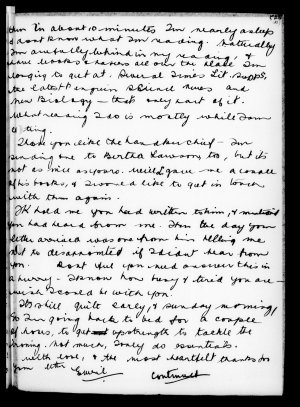 then in about 10 minutes I'm nearly asleep
& dont know what I'm reading. Naturally
I'm awfully behind in my reading, &
have books & papers all over the place I'm
longing to get at. Several Times Lit. Supps,
the latest Penguin Science News and
New Biology — that's only part of it.
What reading I do is mostly while I'm
Hope you like the handkerchief — I'm
sending one to Bertha Lawson, too, but it's
not as nice as yours. gave me a couple
of his books, & I would like to get in touch
with him again.
JK told me you had written to him, &
you had heard from me. Then the day your
letter arrived was one from him telling me
not to be disappointed if I didnt hear from
you. Dont feel you need answer this in
a hurry — I know how busy & tired you are —
wish I could be with you.
It's still quite early, & Sunday morning,
so I'm going back to bed for a couple
of hours, to get up strength to tackle the
ironing. Not much, I only do essentials.
With love, & the most heartfelt thanks for
your letter